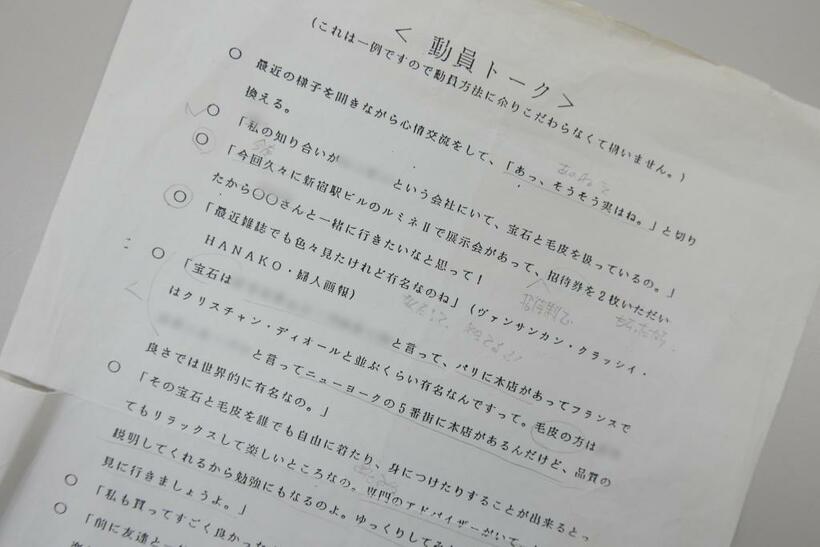 < 動員トーク >
(これは一例ですので動員方法に余りこだわらなくて構いません。)
○ 最近の様子を聞きながら心情交流をして、「あっ、そうそう実はね。」と切り
換える。
○ 「私の知り合いが という会社にいて、宝石と毛皮を扱っているの。」
○ 「今回久々に新宿駅ビルのルミネⅡで展示会があって、招待券を2枚いただい
たから〇〇さんと一緒に行きたいなと思って!
○ 「最近雑誌でも色々見たけれど有名なのね」(ヴァンサンカン・クラッシィ・
HANAKO・婦人画報)
○ 「宝石は と言って、パリに本店があってフランスで
はクリスチャン・ディオールと並ぶくらい有名なんですって。毛皮の方は
と言ってニューヨークの5番街に本店があるんだけど、品質の
良さでは世界的に有名なの。」
○ 「その宝石と毛皮を誰でも自由に着たり、身につけたりすることが出来るとっ
てもリラックスして楽しいところなの。専門のアドバイザーがいて
説明してくれるから勉強にもなるのよ。ゆっくりしてみ
見に行きましょうよ。」
○ 「私も買ってすごく良かった
○ 「前に友達と一